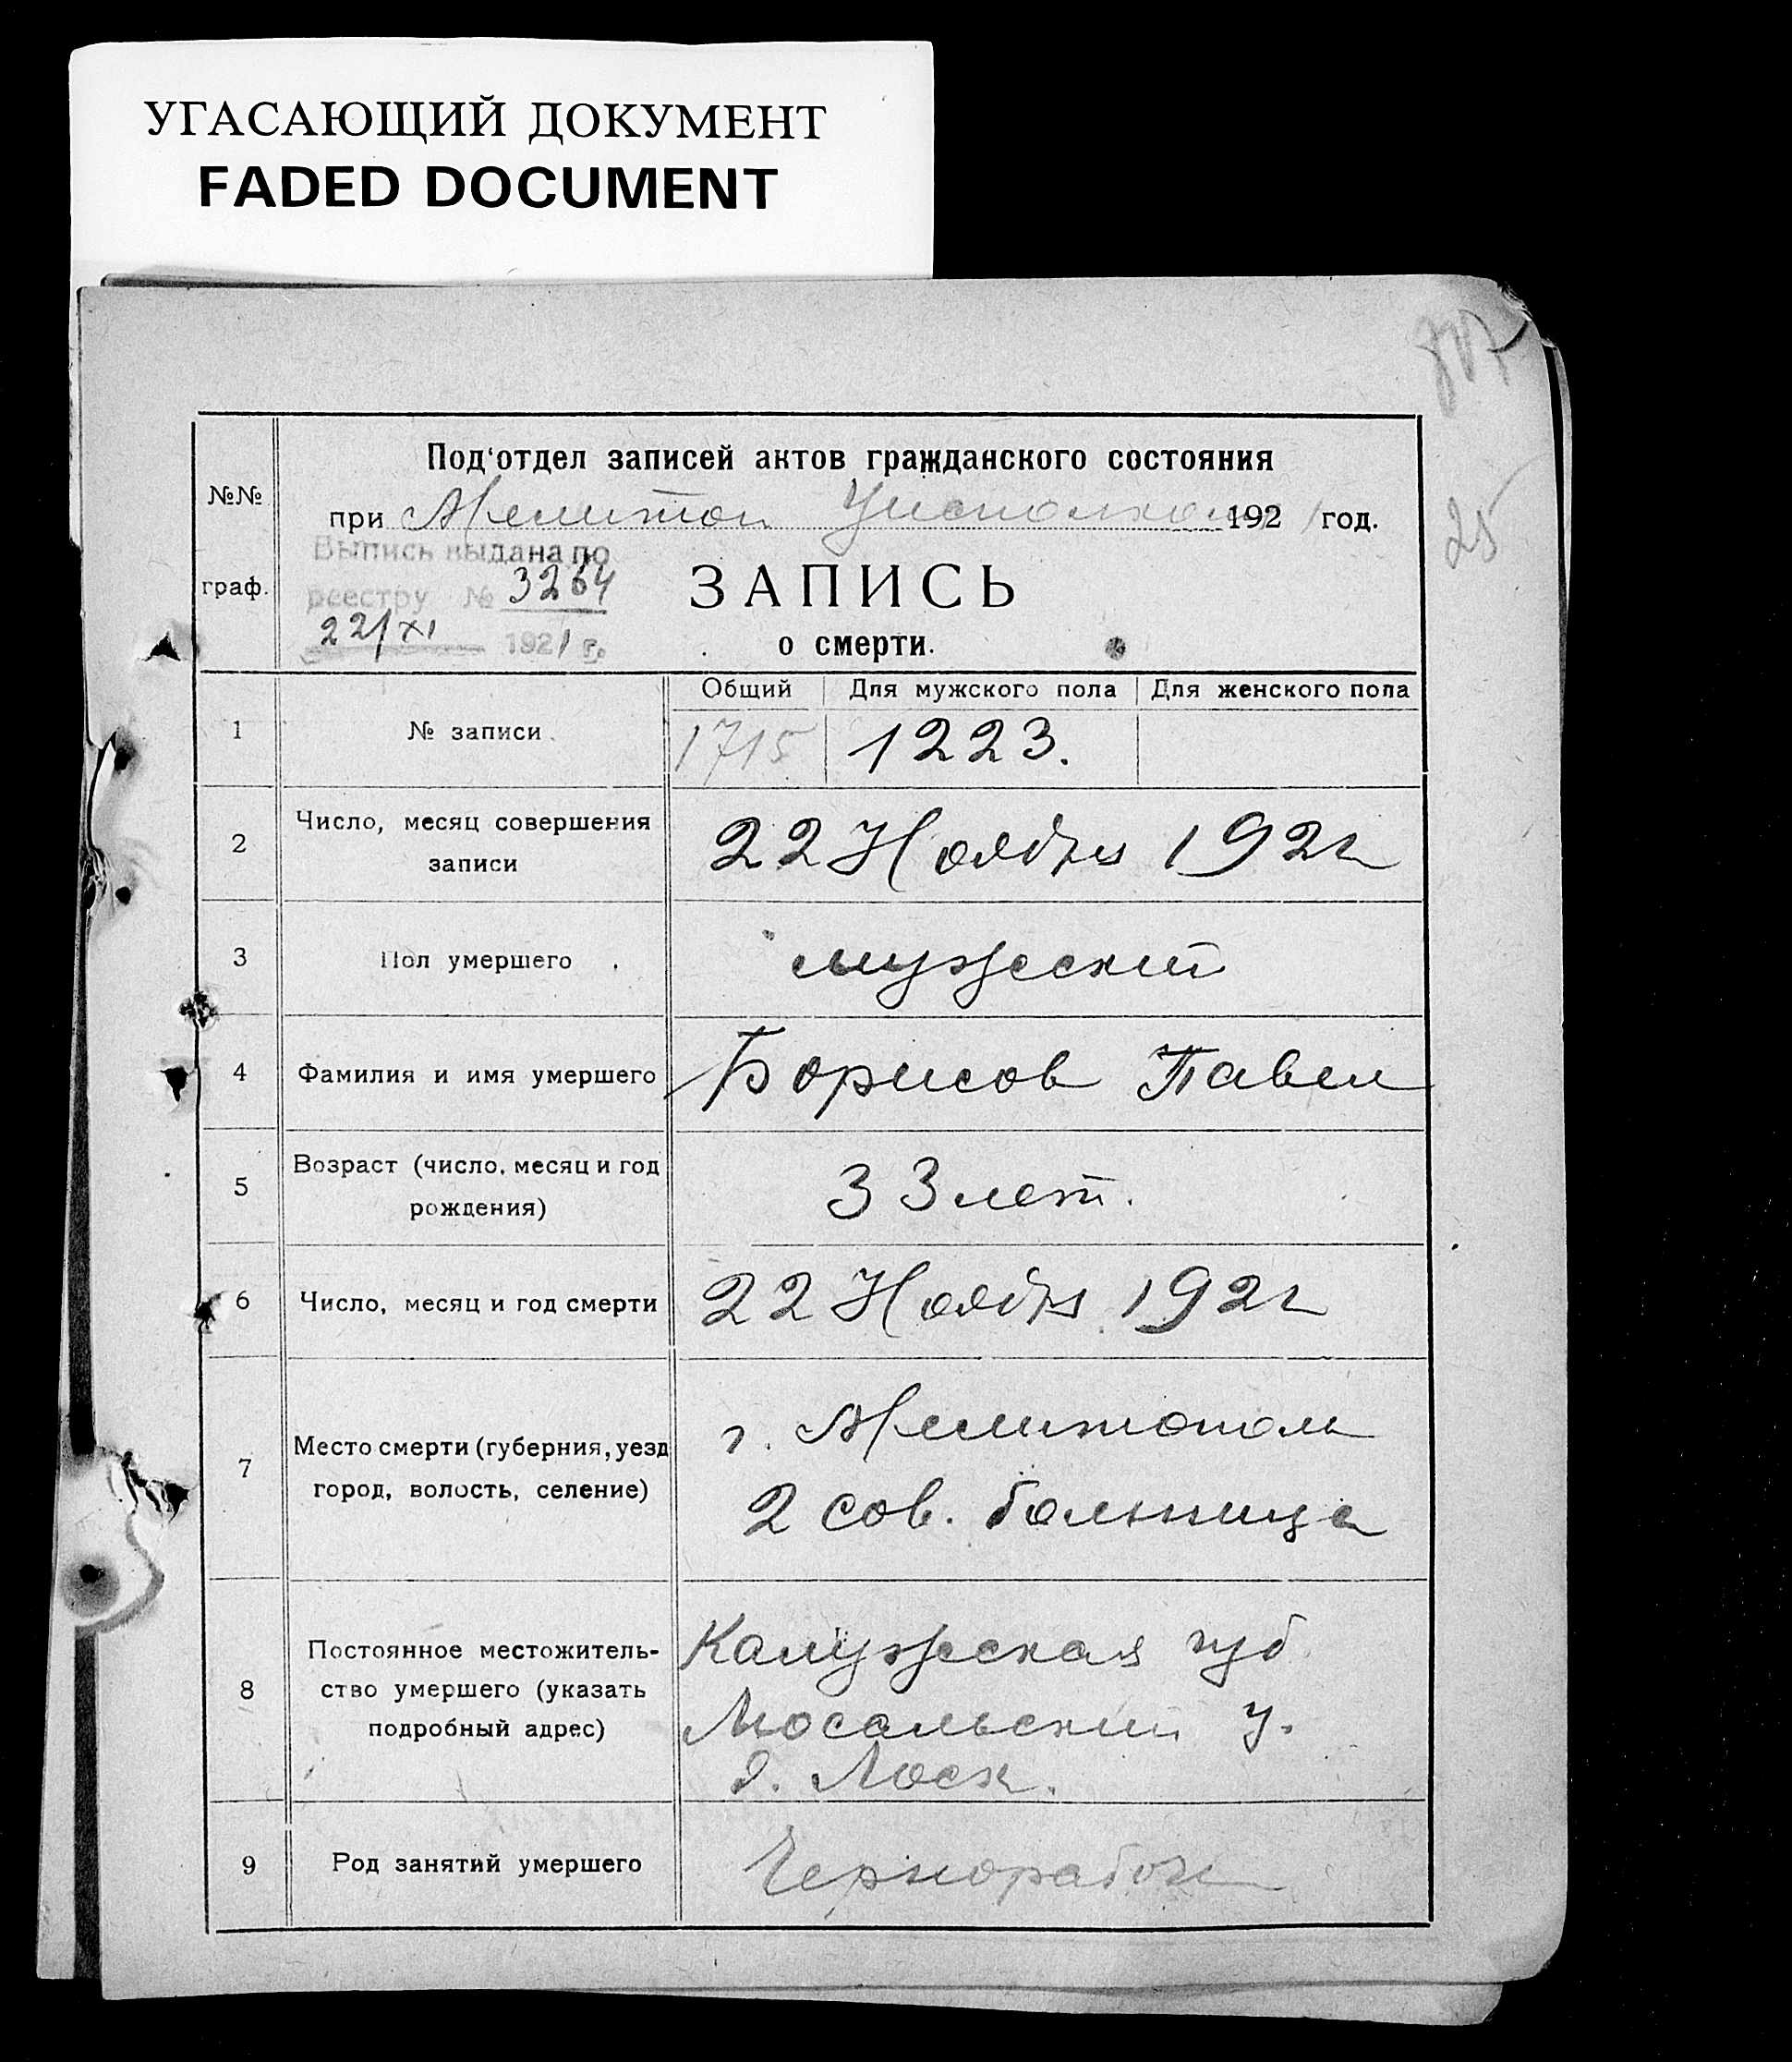 УГАСАЮЩИЙ ДОКУМЕНТ
FADED DOCUMENT
25
Под'отдел записей актов гражданского состояния
№№
при Мелитоп Уисполкоме 1921 год.
Выпись выдана по
реестру № 3264
22/XI 1921 г.
граф.
ЗАПИСЬ
о смерти.
Общий Для мужского пола Для женского пола
1 № записи 1715 1223.
2 Число, месяц совершения
записи
22 Ноября 1921
3 Пол умершего мужской
4 Фамилия и имя умершего Борисов Павел
5 Возраст (число, месяц и год
рождения)
33 лет.
6 Число, месяц и год смерти 22 Ноября 1921
7 Место смерти (губерния, уезд
город, волость, селение)
г. Мелитополь
2 сов. больница
8 Постоянное местожитель-
ство умершего (указать
подробный адрес)
Калужская губ
Мосальский у.
д. Лоск.
9 Род занятий умершего Чернорабоч